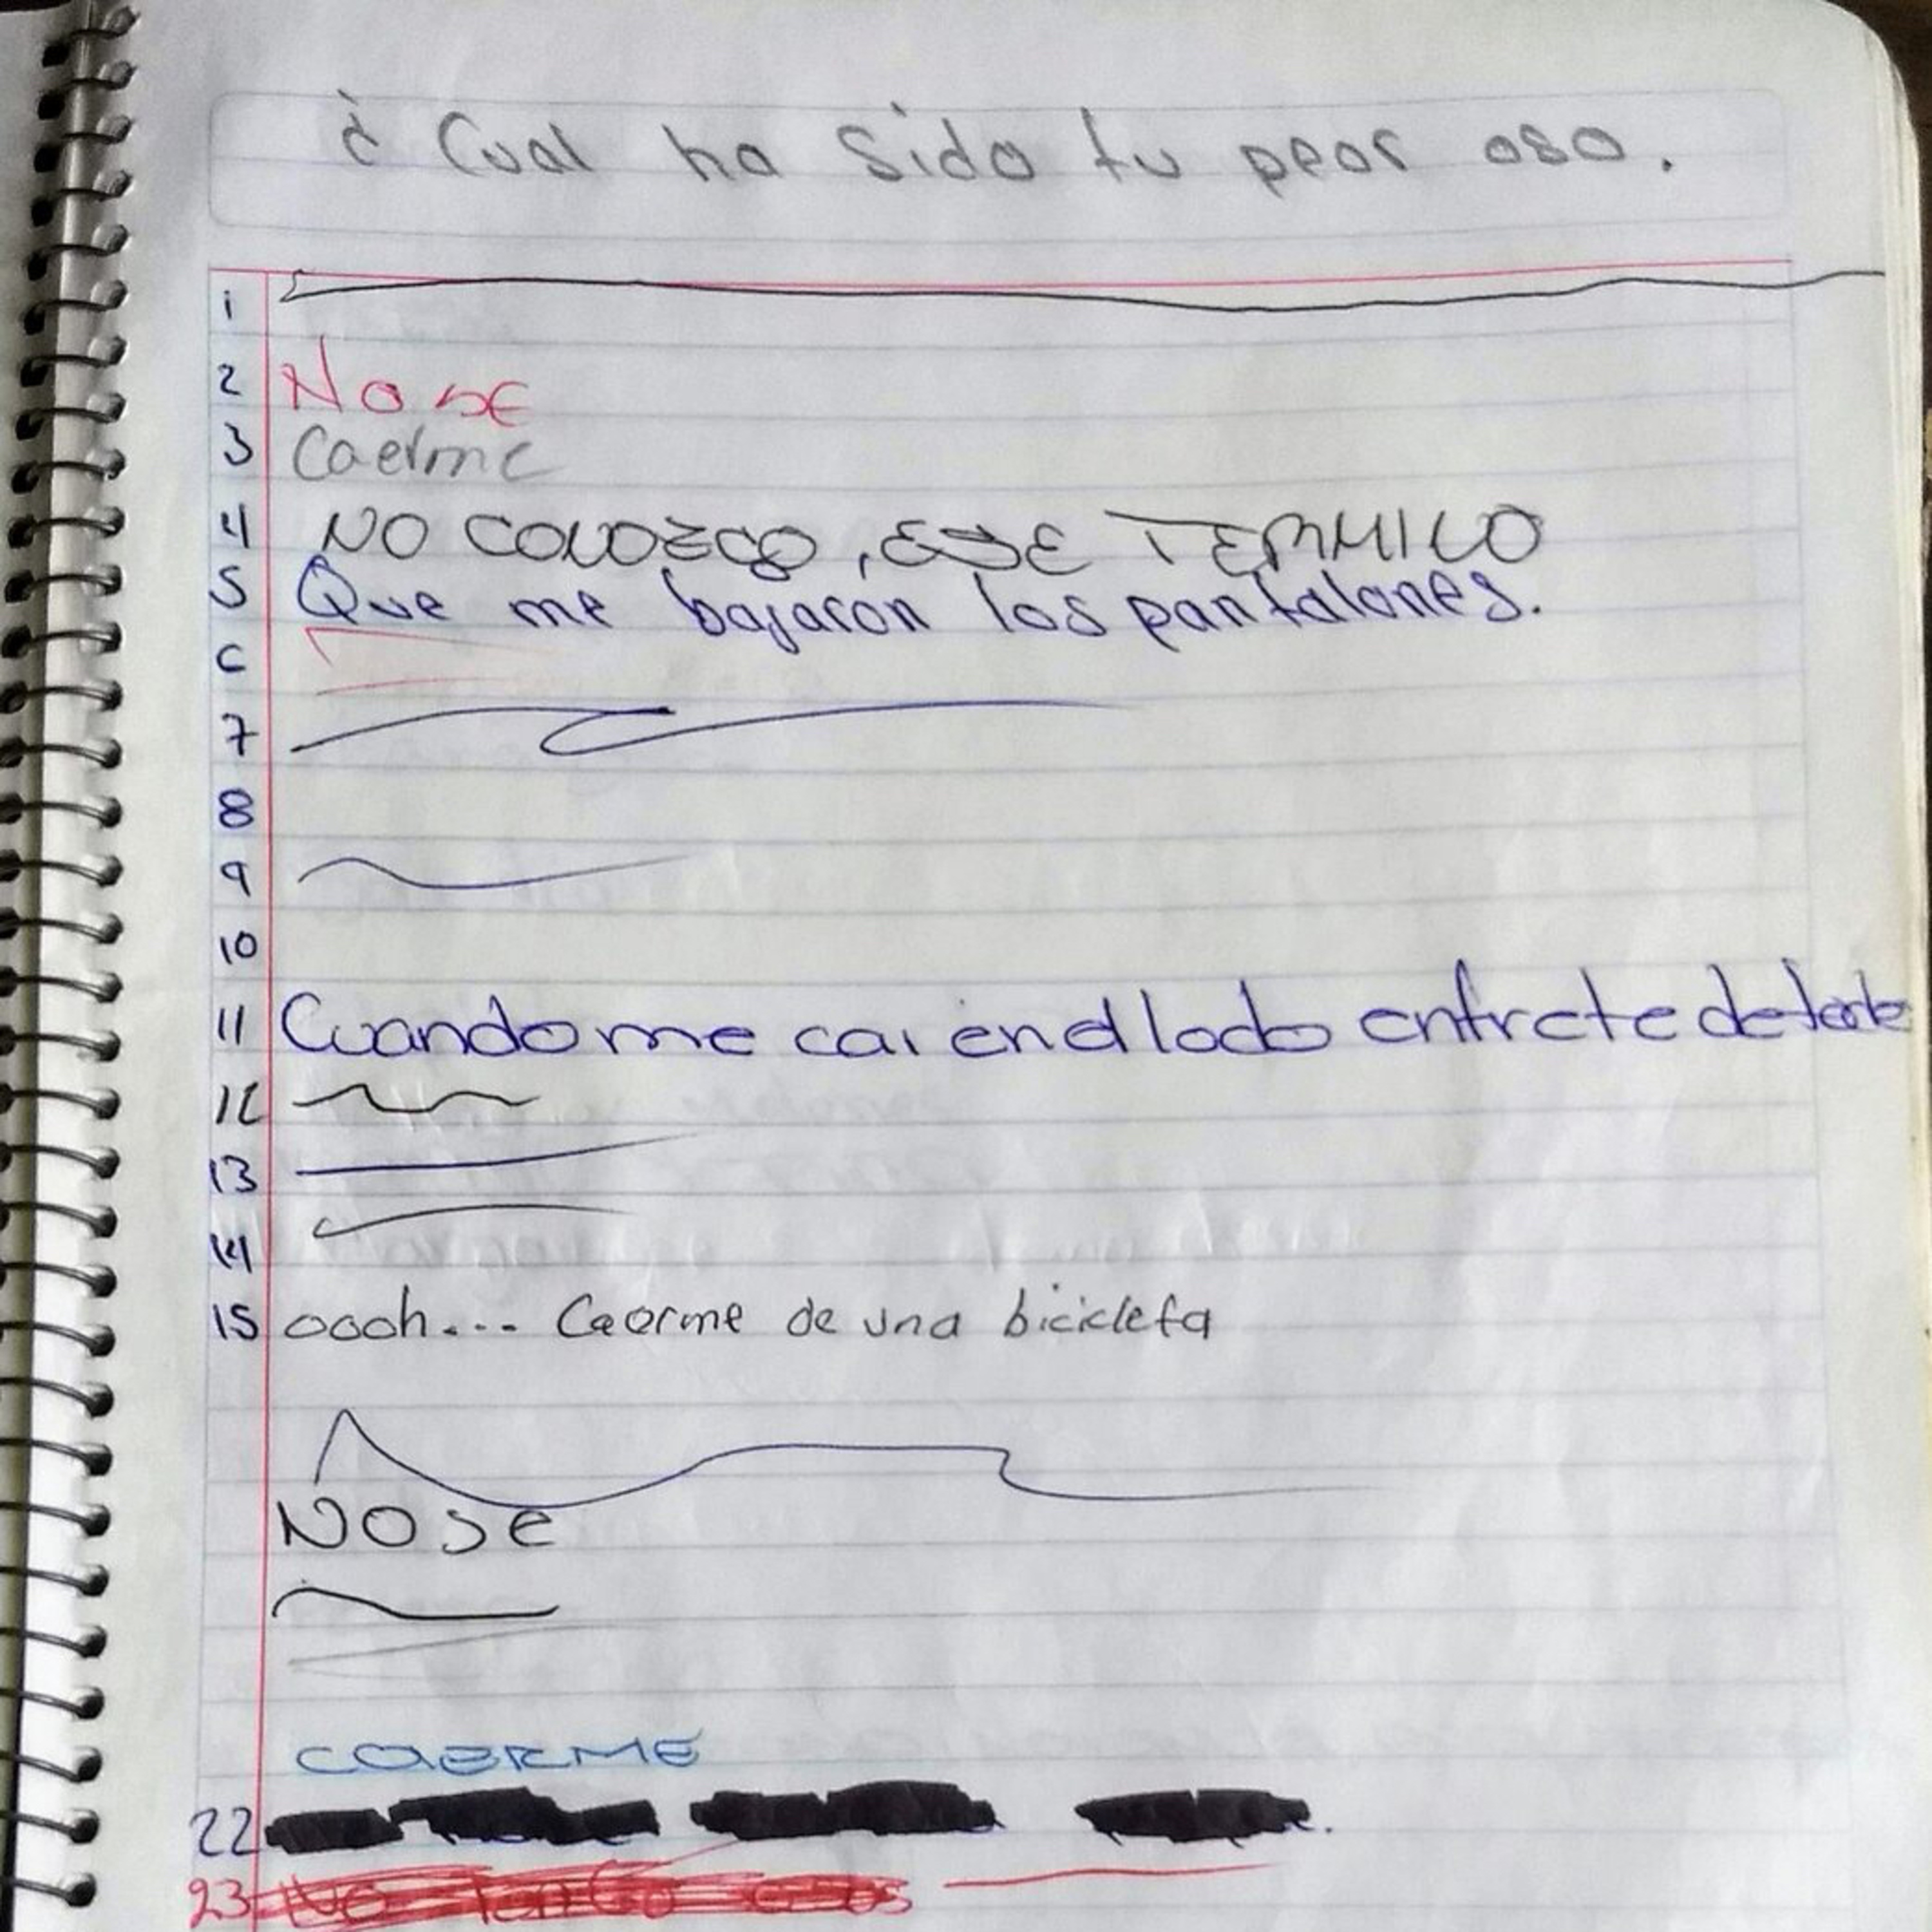 ¿ Cual ha sido tu peor oso.
1
2 No se
3 Caerme
4 NO CONOZCO, ESE TERMINO
5 Que me bajaron los pantalones.
6
7
8
9
10
11 Cuando me cai en el lodo enfrete de todos
12
13
14
15 oooh... Caerme de una bicicleta
NOSE
CAERME
22
23 No Tengo osos